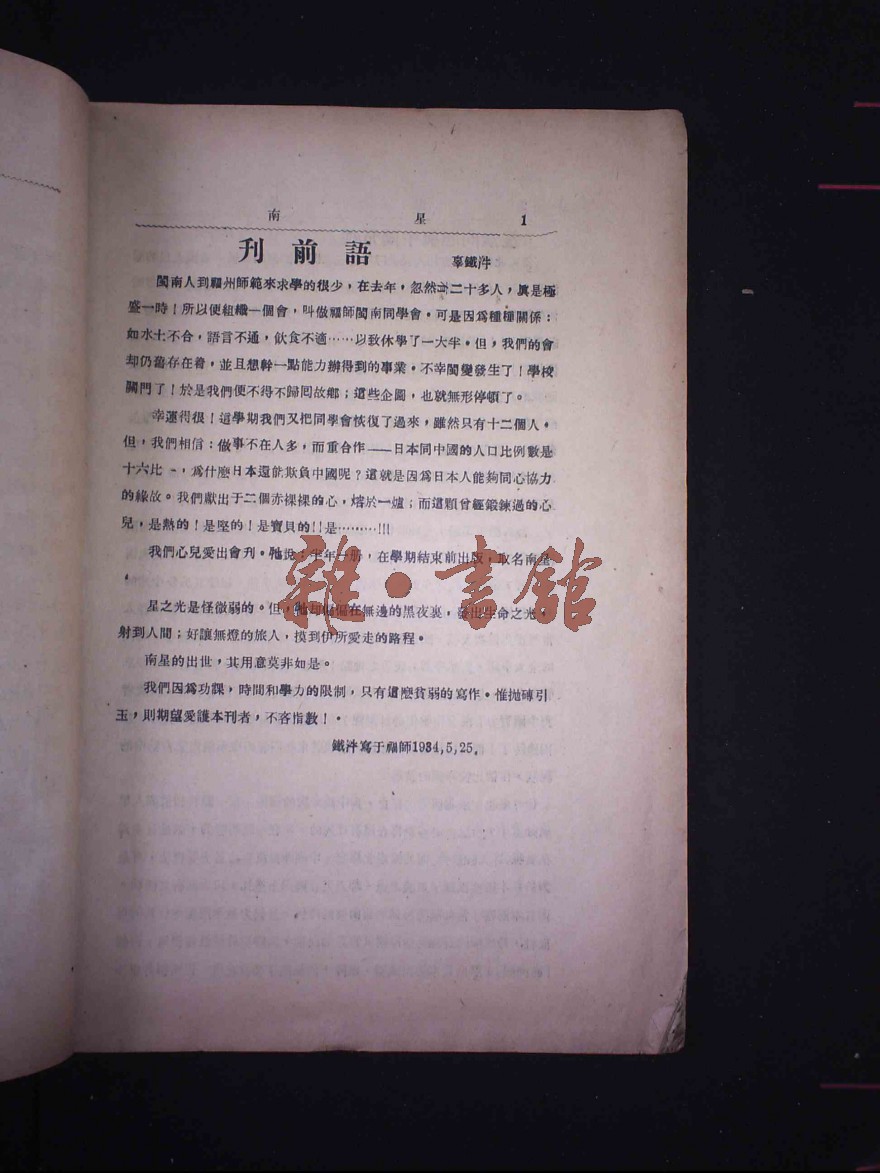 南 星 1
刊前語 辜鐵泮
閩南人到福州師範來求學的很少，在去年，忽然二十多人，眞是極
盛一時！所以便組織一個會，叫做福師閩南同學會。可是因爲種種關係：
如水土不合，語言不通，飲食不適……以致休學了一大半。但，我們的會
却仍舊存在着，並且想幹一點能力辦得到的事業。不幸閩變發生了！學校
關門了！於是我們便不得不歸囘故鄉；這些企圖，也就無形停頓了。
幸運得很！這學期我們又把同學會恢復了過來，雖然只有十二個人。
但，我們相信：做事不在人多，而重合作——日本同中國的人口比例數是
十六比，爲什麼日本還能欺負中國呢？這就是因爲日本人能夠同心協力
的緣故。我們獻出于二個赤裸裸的心，熔於一爐；而這顆曾經鍛鍊過的心
兒，是熱的！是堅的！是寶貝的！！是………!!!
我們心兒愛出會刊。牠說：半年一册，在學期結束前出版，取名南星
。
雜·書館
星之光是怪微弱的。但，牠却偏偏在無邊的黑夜裏，發出生命之光，
射到人間；好讓無燈的旅人，摸到伊所愛走的路程。
南星的出世，其用意莫非如是。
我們因爲功課，時間和學力的限制，只有這麽貧弱的寫作。惟拋磚引
玉，則期望愛護本刊者，不吝指教！。
鐵泮寫于福師1934,5,25.